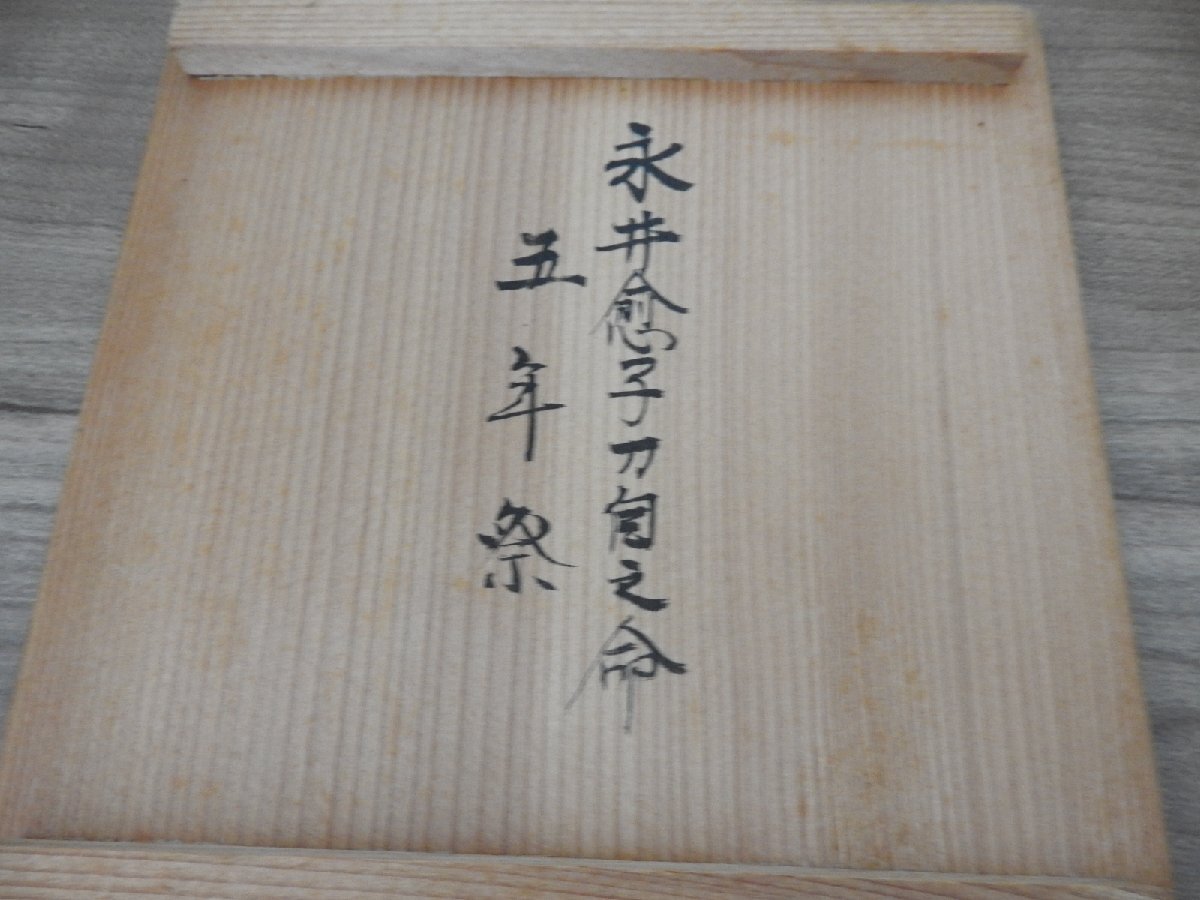 永井愈子刀自之命
五年祭